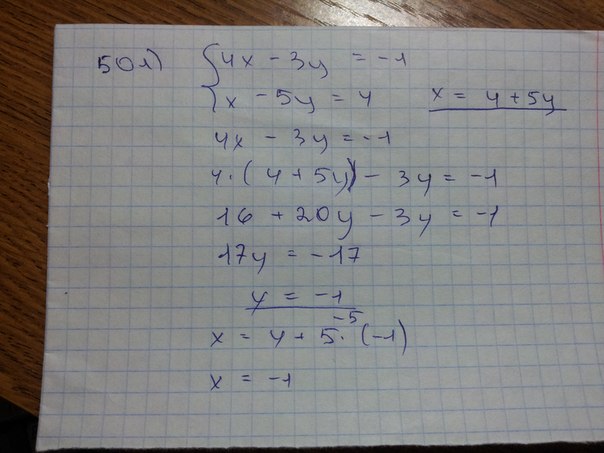 501) { 4x - 3y = -1
{ x - 5y = 4    x = 4 + 5y
4x - 3y = -1
4 · (4 + 5y) - 3y = -1
16 + 20y - 3y = -1
17y = -17
y = -1
-5
x = 4 + 5 · (-1)
x = -1